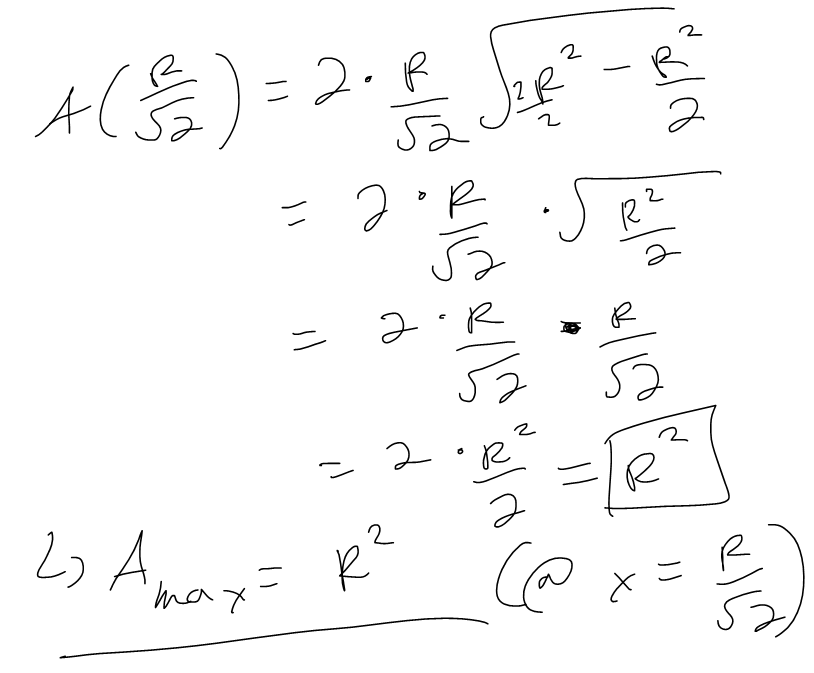 A(R/√2) = 2 · R/√2 √(2R²/2 − R²/2)
= 2 · R/√2 · √(R²/2)
= 2 · R/√2 · R/√2
= 2 · R²/2 = R²
↳ A_max = R² (@ x = R/√2)